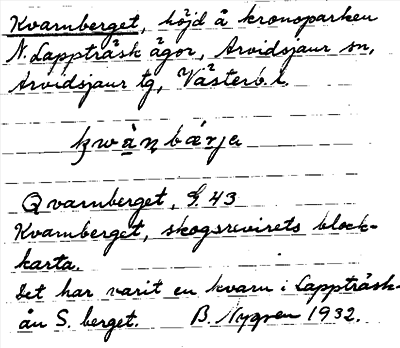 Kvarnberget, höjd å kronoparken
N. Lappträsk ägor, Arvidsjaur sn,
Arvidsjaur tg, Västerb. l.
Qvarnberget, G. 43
Kvarnberget, skogsrevirets block-
karta.
Det har varit en kvarn i Lappträsk-
ån S. berget. B. Nygren 1932.